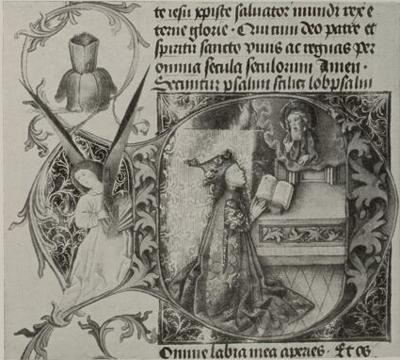 te iesu xpiste saluator mundi rex e
terne glorie · Qui cum deo patre et
spiritu sancto viuis ac regnas per
omnia secula seculorum Amen ·
Secuntur psalmi scilicet
Omine labia mea aperies · Et os